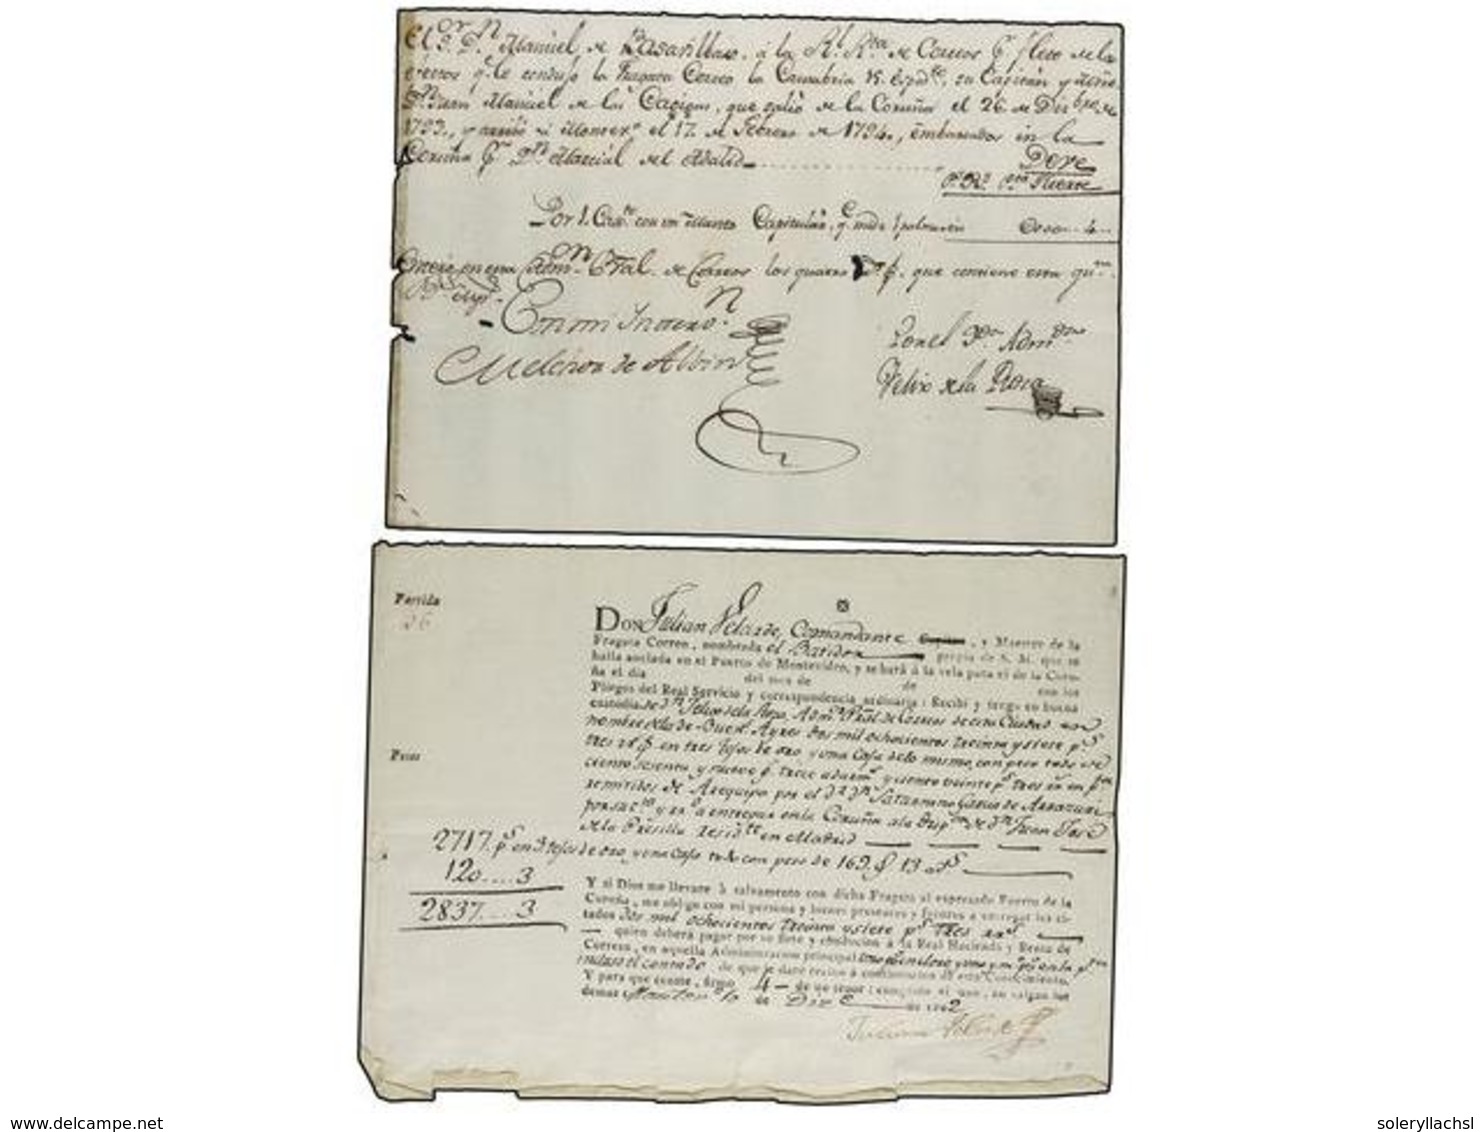 El Sr. Dn. Manuel de Basavilbaso, á la Rl. Rta. de Correos pr. flete de los
efectos qe. le condujo la Fragata Correo la Cantabria su Capitan y Mtre.
Dn. Juan Manuel de las Cagigas, que salió de la Coruña el 26 de Dizbre. de
1793., y arribó á Montevo. el 17. de Febrero de 1794., embarcados en la
Coruña pr. Dn. Marcial del Adalid
Deve
Ps. Rs. Pta. Fuerte
Por 1. Caxn. con un Manto Capitular, qe. mide 1 palmo
Entró en esta Admn. Gral. de Correos los quatro ps. que contiene esta
Melchor de Albin
Por el Sor. Admor.
Felix de la Rosa
Partida
26
DON Julian Velarde, Comandante Capitan, y Maestre de la
Fragata Correo, nombrada el Batidor propia de S. M. que se
halla anclada en el Puerto de Montevideo, y se hará á la vela para el de la Coru-
ña el dia del mes de de con los
Pliegos del Real Servicio y correspondencia ordinaria: Recibí y tengo en buena
custodia de Dn. Felix de la Rosa, Admr. Pral. de Correos de esta Ciudad en
nombre del de Buens. Ayres dos mil ochocientos treinta y siete ps.
tres rs. en tres tejos de oro y una Caja de lo mismo, con peso todo de
ciento sesenta y nueve trece adarms. y ciento veinte ps. tres rs. en pta.
remitidos de Arequipa por el Dr. Dn. Saturnino Garcia de Arrazuri
por su cta. y ro. a entregar en la Coruña a la dispon. de Dn. Juan José
de la Presilla reside. en Madrid
Pesos
2717. ps. en 3 tejos de oro, y una Caja todo con peso de 169. 13 ads.
120....3
2837....3
Y si Dios me llevare á salvamento con dicha Fragata al expresado Puerto de la
Coruña, me obligo con mi persona y bienes presentes y futuros a entregar los ci-
tados dos mil ochocientos treinta y siete ps. tres rs.
quien deberá pagar por su flete y conducion á la Real Hacienda y Renta de
Correos, en aquella Administracion principal
incluso el contado de que se dará recibo á continuacion de este Conocimiento.
Y para que conste, firmo 4 de un tenor: cumplido el uno, no valgan los
demas Montevo. de Dize. de 1802
Julian Velarde
www.delcampe.net
soleryllachsl